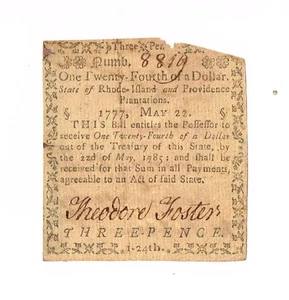 Three Pen
Numb. 8819
One Twenty-Fourth of a Dollar.
State of Rhode-Island and Providence
Plantations.
§ 1777, MAY 22. §
THIS Bill entitles the Possessor to
receive One Twenty-Fourth of a Dollar
out of the Treasury of this State, by
the 22d of May, 1785; and shall be
received for that Sum in all Payments,
agreeable to an Act of said State.
Theodore Foster
THREEPENCE.
1-24th.